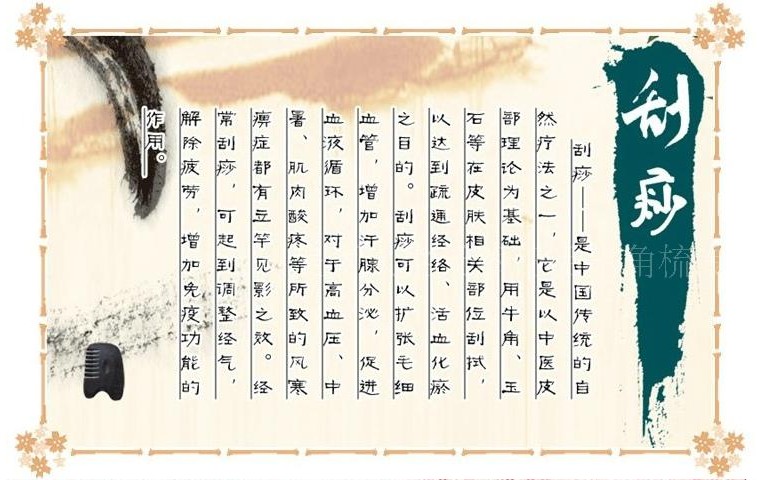 刮痧
刮痧——是中国传统的自
然疗法之一，它是以中医皮
部理论为基础，用牛角、玉
石等在皮肤相关部位刮拭，
以达到疏通经络、活血化瘀
之目的。刮痧可以扩张毛细
血管，增加汗腺分泌，促进
血液循环，对于高血压、中
暑、肌肉酸疼等所致的风寒
痹症都有立竿见影之效。经
常刮痧，可起到调整经气，
解除疲劳，增加免疫功能的
作用。
角梳